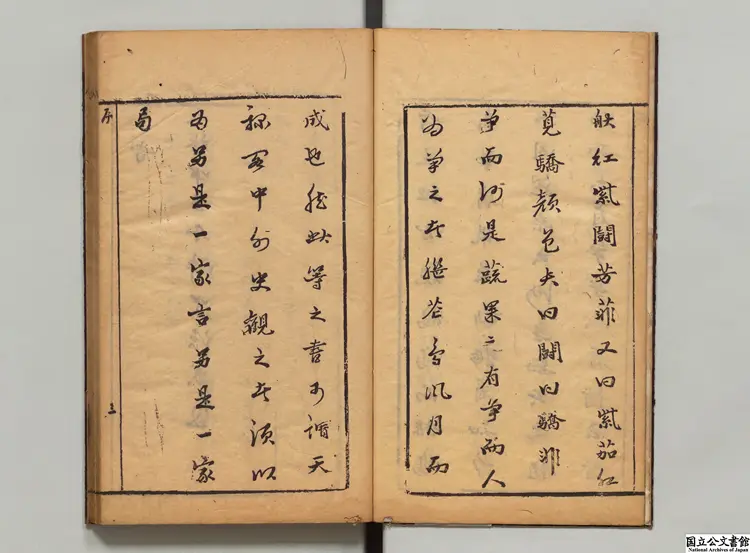 般紅紫闘芳菲又曰紫茄紅
莧驕顔色夫曰闘曰驕非
爭而何是蔬果之有爭而人
為爭之者継花鳥風月而
成也然此等之書可謂天
祿閣中外史觀之者須以
為另是一家言另是一家
局
序
三
国立公文書館
National Archives of Japan